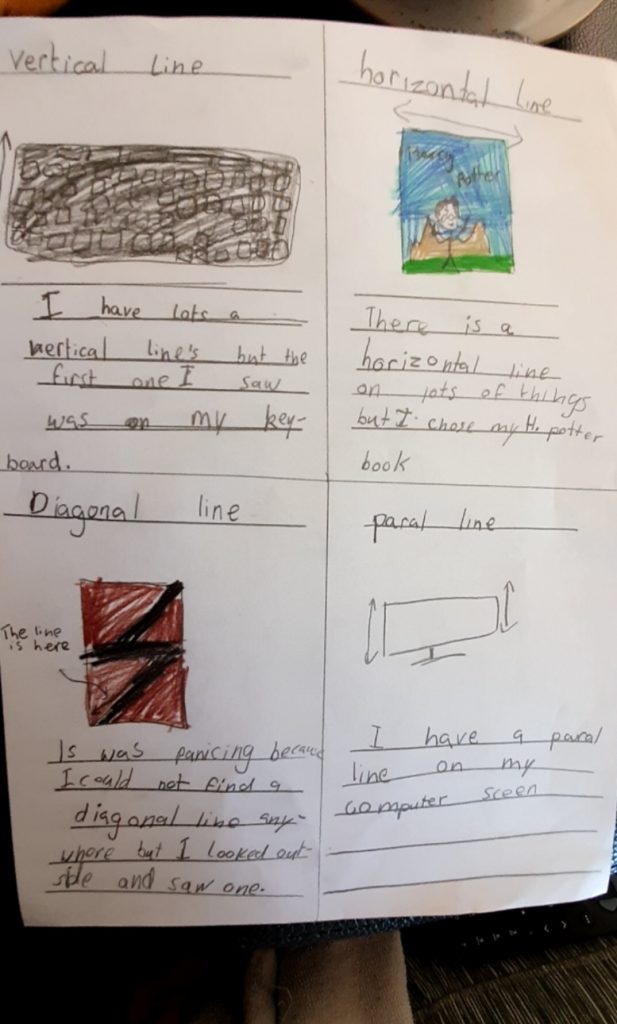 vertical line
I have lots a
vertical line's but the
first one I saw
was on my key-
board.
horizontal line
Harry
Potter
There is a
horizontal line
on lots of things
but I chose my H. potter
book
Diagonal line
The line
is here
Is was panicing because
I could not find a
diagonal line any-
where but I looked out-
side and saw one.
paral line
I have a paral
line on my
computer sceen